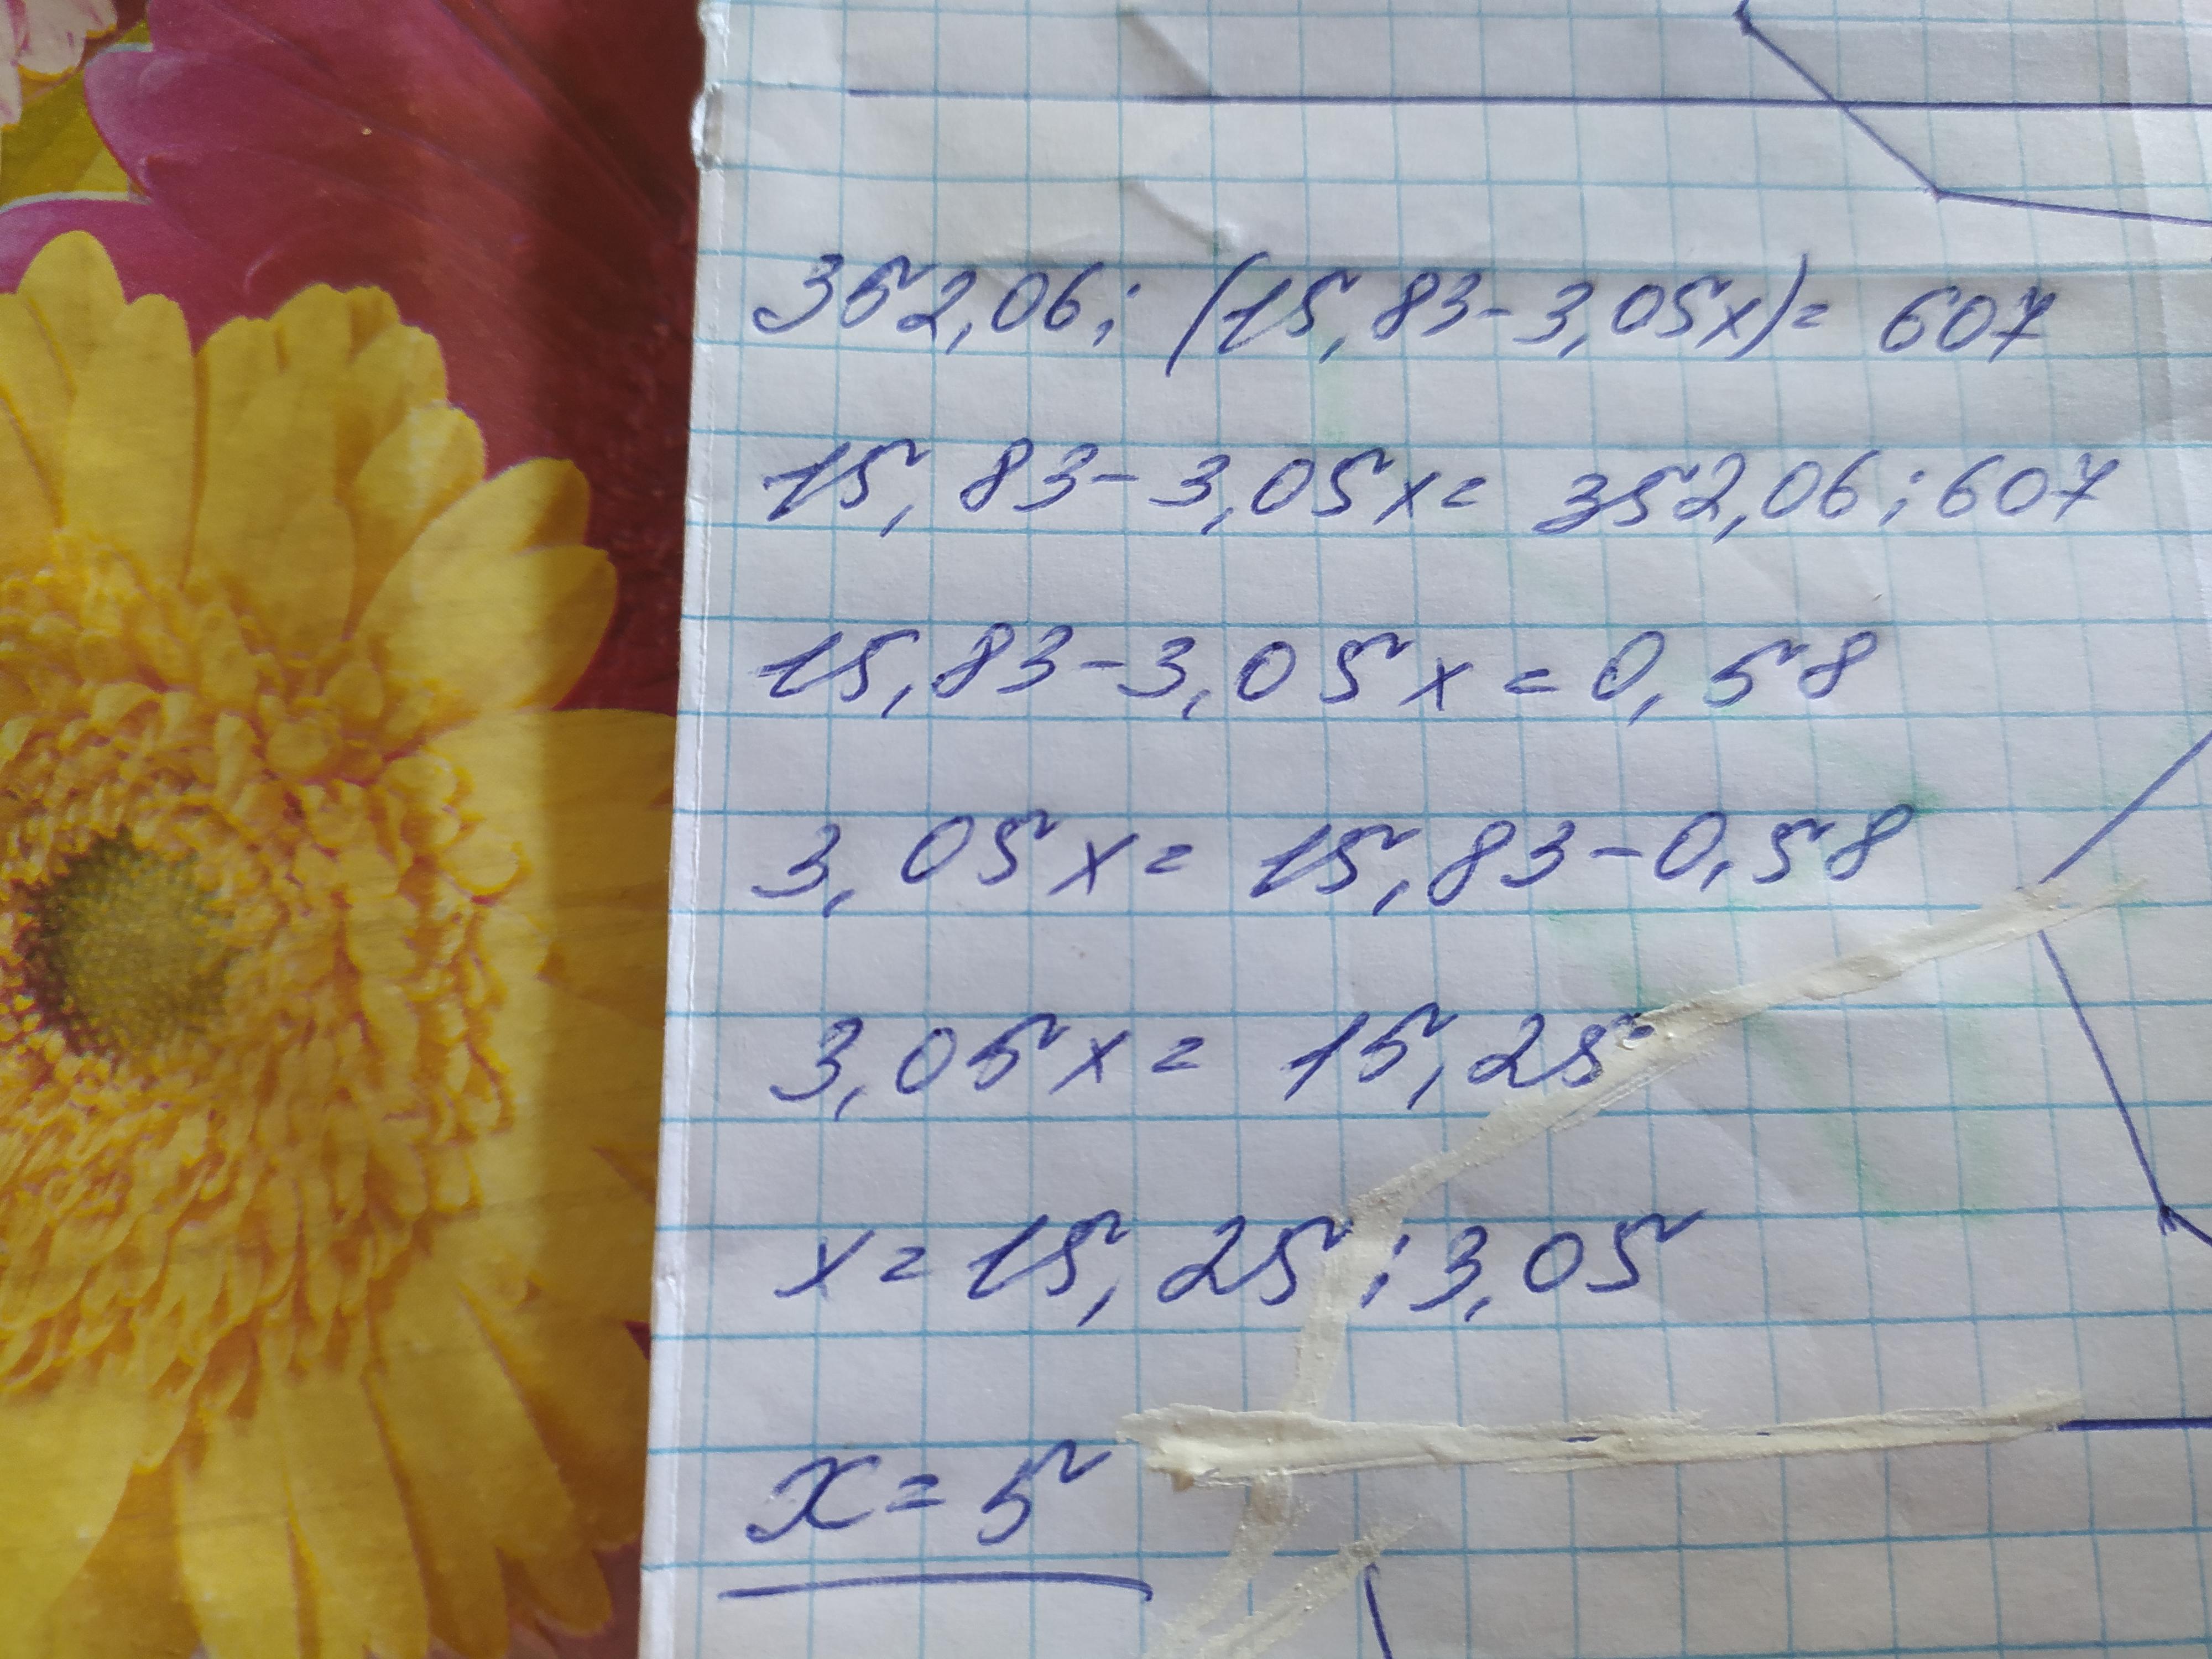 352,06 : (15,83 - 3,05x) = 607
15,83 - 3,05x = 352,06 : 607
15,83 - 3,05x = 0,58
3,05x = 15,83 - 0,58
3,05x = 15,25
x = 15,25 : 3,05
x = 5